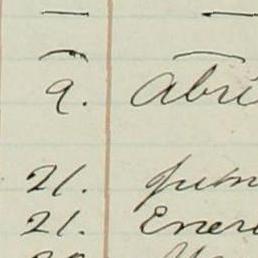 9. Abri
21. Jun
21. Ener